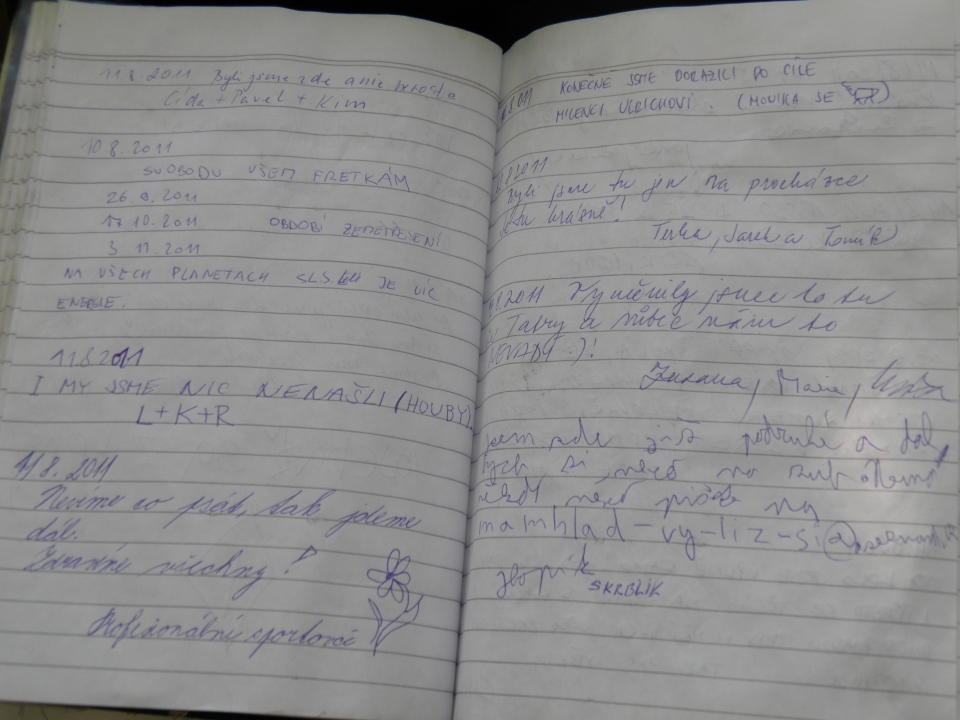 11.8.2011 Byli jsme zde a nic
Cída + Pavel + Kim
10 8. 2011
SVOBODU VŠEM FRETKÁM
26. 9. 2011
17 10. 2011 OBDOBÍ ZEMĚTŘESENÍ
3 11. 2011
NA VŠECH PLANETACH SLS. JE VÍC
ENERGIE.
11.8.2011
I MY JSME NIC NENAŠLI (HOUBY).
L+K+R
11 8. 2011
Nevíme co psát, tak jdeme
dál.
Zdravíme všechny!
Profesionální sportovci
8.2011 KONEČNĚ JSME DORAZILI DO CÍLE
MILENCI ULRICHOVI. (MONIKA SE
8.2011
Byli jsme tu jen na procházce
je tu krásně!
Terka, Jarek a Tomík
8.2011 Vyměnily jsme to tu
z Tatry a vůbec nám to
NEVADÍ :-)!
Zuzana, Marie,
jsem zde již podruhé a dal
bych si něco na zub
když něco pište na
mamhlad-vy-liz-si@seznam.cz
SKRBLÍK